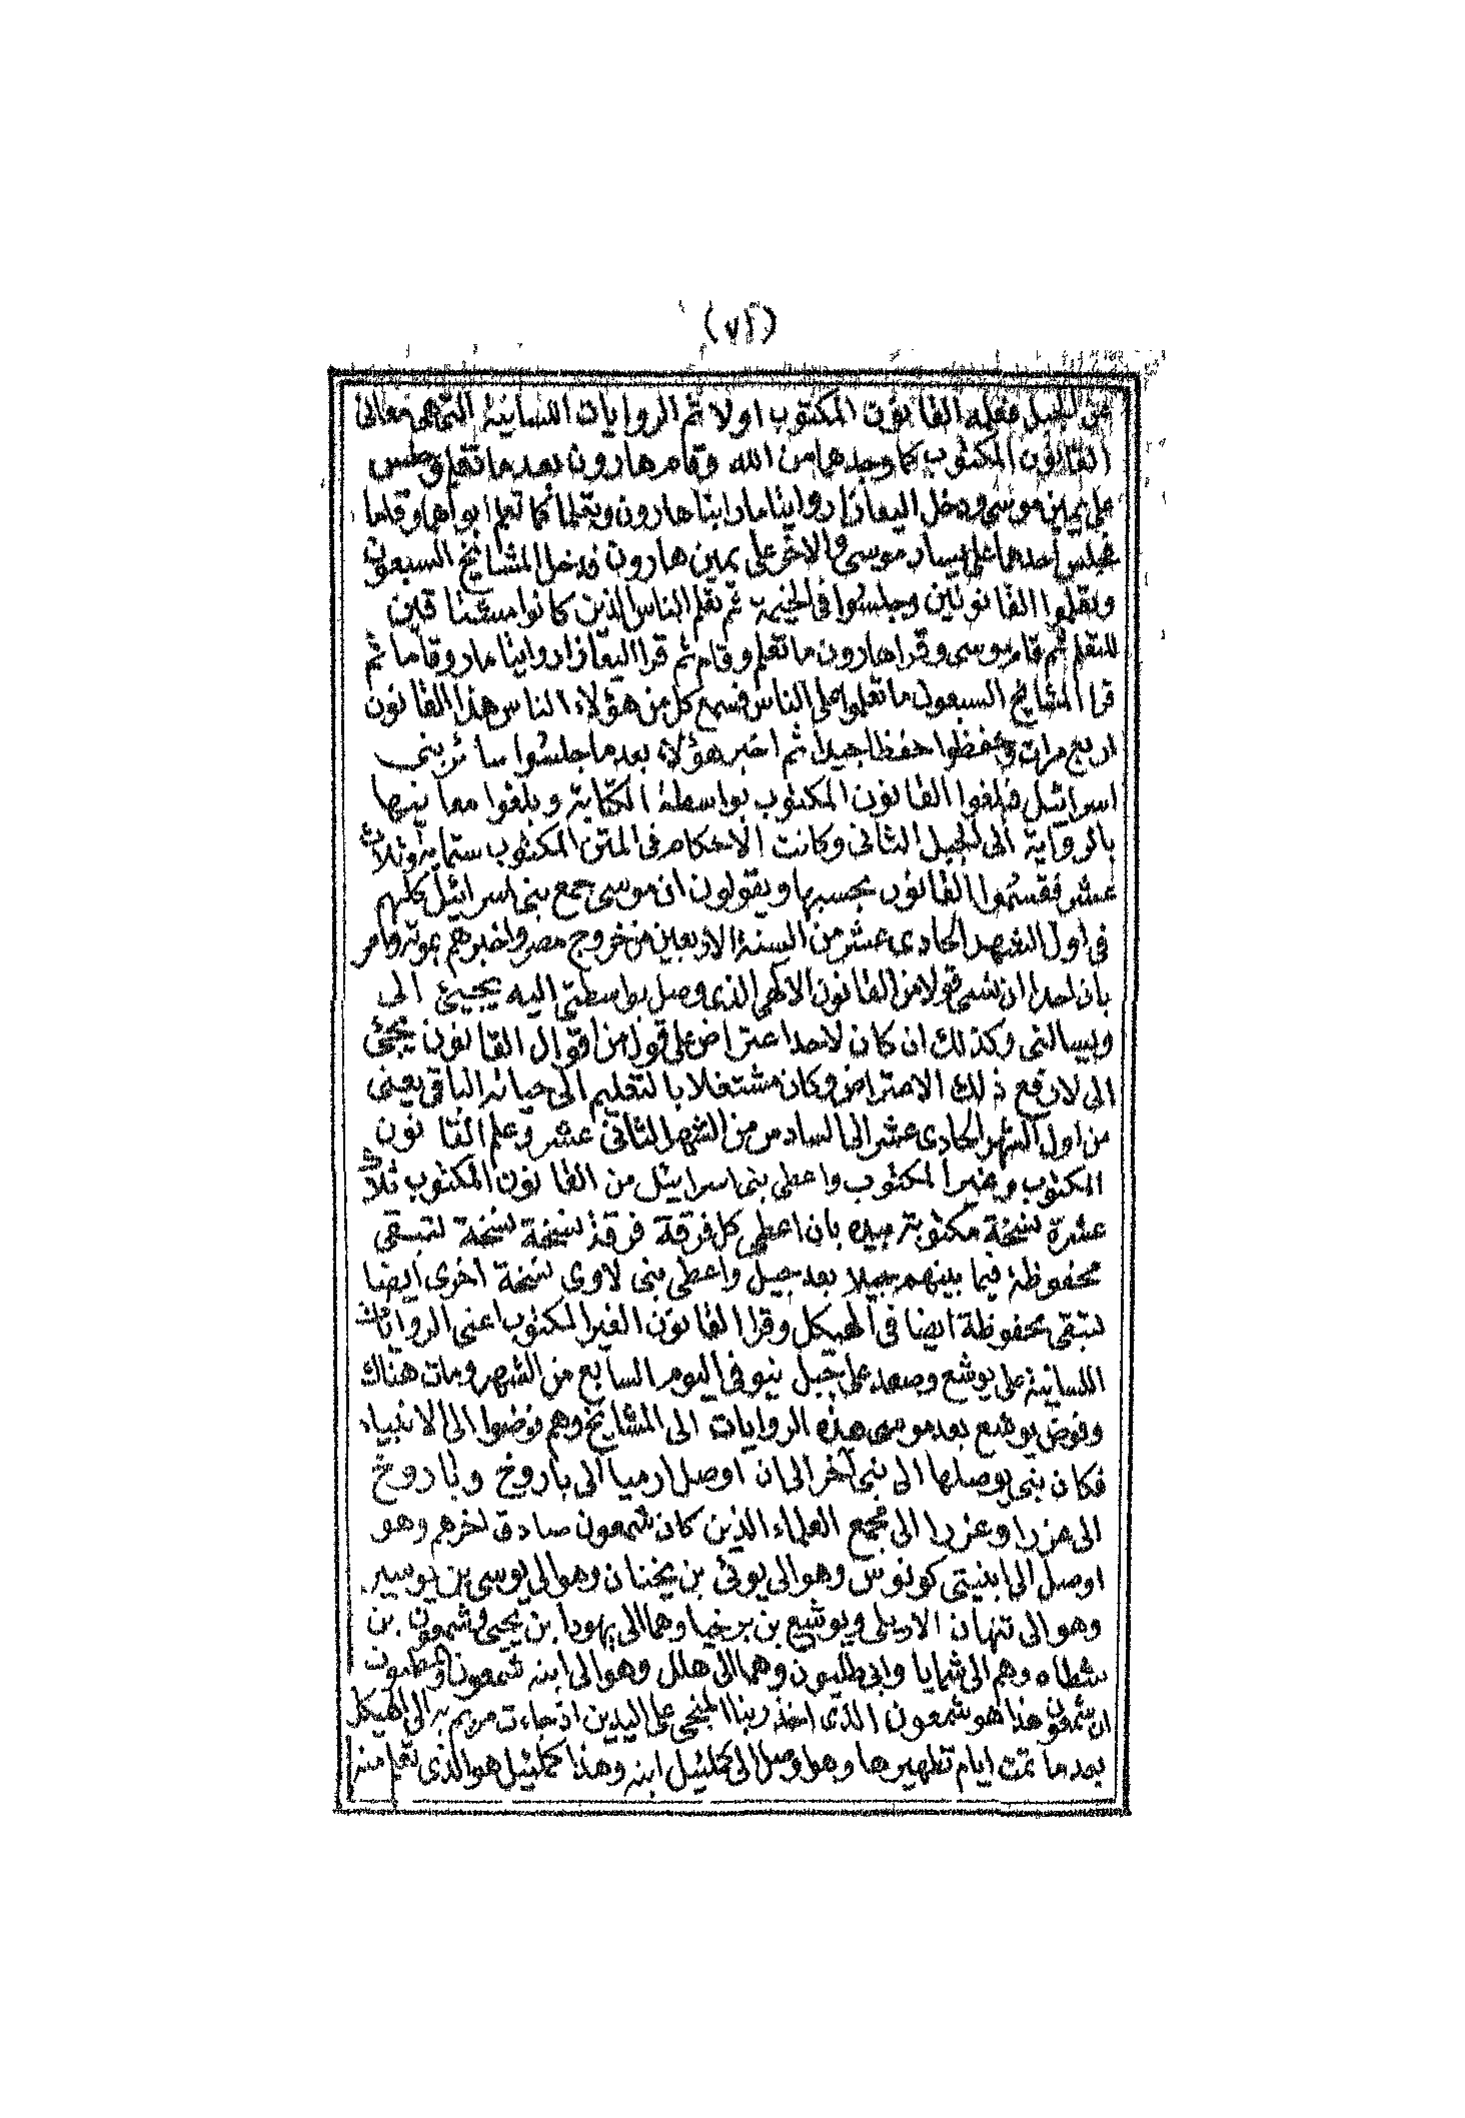 (٧١)
من الجبل فعلمه القانون المكتوب اولا ثم الروايات اللسانية التى هى معانى
القانون المكتوب كما وجدهما من الله وقام هارون بعد ما تعلم وجلس
على يمين موسى ودخل اليعازار وايثامار ابنا هارون وتعلما كما تعلم ابواهما وقاما
فجلس احدهما على يسار موسى والاخر على يمين هارون فدخل المشايخ السبعون
وتعلموا القانونين وجلسوا فى الخيمة ثم تعلم الناس الذين كانوا مشتاقين
للتعلم ثم قام موسى وقرا هارون ما تعلم وقام ثم قرا اليعازار وايثامار وقاما ثم
قرا المشايخ السبعون ما تعلموا على الناس فسمع كل من هؤلاء الناس هذا القانون
اربع مرات وحفظوا حفظا جيدا ثم اخبر هؤلاء بعد ما جلسوا سائر بنى
اسرائيل فبلغوا القانون المكتوب بواسطة الكتابة وبلغوا معانيها
بالرواية الى الجيل الثانى وكانت الاحكام فى المتن المكتوب ستماية وثلاث
عشر فقسموا القانون بحسبها ويقولون ان موسى جمع بنى اسرائيل كلهم
فى اول الشهر الحادى عشر من السنة الاربعين من خروج مصر واخبرهم بموته وامر
بان احدا ان نسى قولا من القانون الالهى الذى وصل بواسطتى اليه يجيئ الى
ويسالنى وكذلك ان كان لاحد اعتراض على قول من اقوال القانون يجئ
الى لارفع ذلك الاعتراض وكان مشتغلا بالتعليم الى حياته الباقى يعنى
من اول الشهر الحادى عشر الى السادس من الشهر الثانى عشر وعلم القانون
المكتوب وغير المكتوب واعطى بنى اسرايئل من القانون المكتوب ثلاث
عشرة نسخة مكتوبة بيده بان اعطى كل فرقة فرقة نسخة نسخة لتبقى
محفوظة فيما بينهم جيلا بعد جيل واعطى بنى لاوى نسخة اخرى ايضا
لتبقى محفوظة ايضا فى الهيكل وقرا القانون الغير المكتوب اعنى الروايات
اللسانية على يوشع وصعد على جبل نيو فى اليوم السابع من الشهر ومات هناك
وفوض يوشع بعد موسى هذه الروايات الى المشايخ وهم فوضوا الى الانبياء
فكان نبى يوصلها الى نبى آخر الى ان اوصل ارميا الى باروخ وباروخ
الى عزرا وعزرا الى مجمع العلماء الذين كان شمعون صادق اخرهم وهو
اوصل الى ابنيتى كونوس وهو الى يوئى بن يخنان وهو الى يوسى بن يوسير
وهو الى نتهان الاريلى ويوشيع بن برخيا وهما الى يهودا بن يحيى وشمعون بن
شطاه وهم الى شمايا وابى طليون وهما الى هلل وهو الى ابنه شمعون والمظنون
ان شمعون هذا هو شمعون الذى اخذ ربنا المنجى على اليدين اذ جاءت مريم به الى الهيكل
بعد ما تمت ايام تطهيرها وهو اوصل الى كمليئل ابنه وهذا كمليئل هو الذى تعلم منه